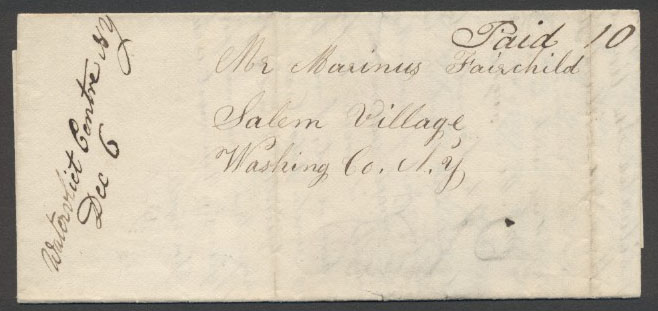 Paid 10
Mr Marinus Fairchild
Salem Village
Washing Co. N.Y
Watervliet Centre NY
Dec 6